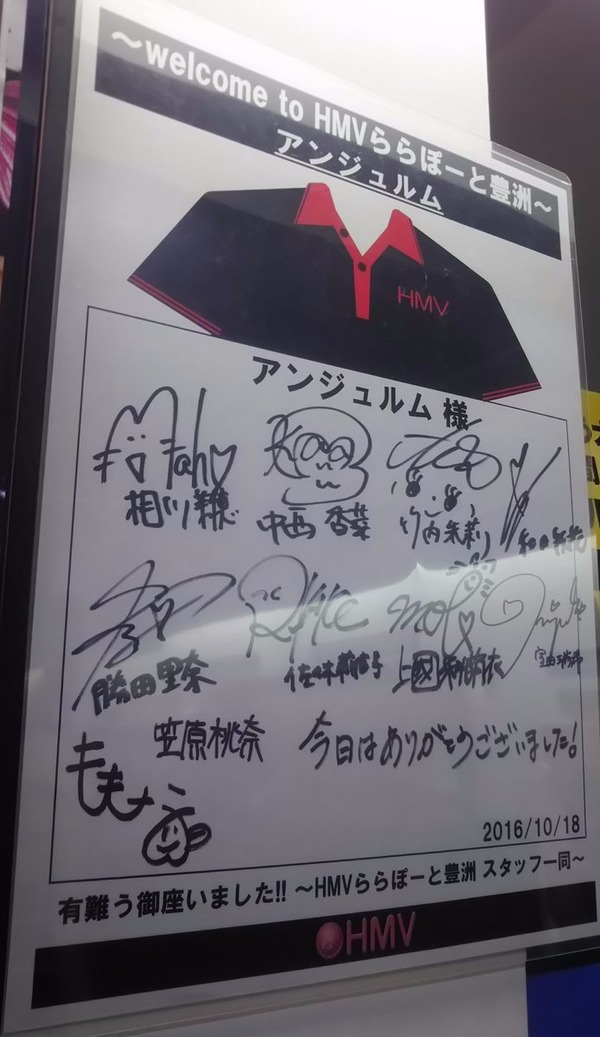 ～welcome to HMVららぽーと豊洲～
アンジュルム
HMV
アンジュルム 様
相川茉穂 中西香菜 竹内朱莉 和田彩花
勝田里奈 佐々木莉佳子 上國料萌衣 室田瑞希
笠原桃奈 今日はありがとうございました!
ももな
2016/10/18
有難う御座いました!! ～HMVららぽーと豊洲 スタッフ一同～
HMV